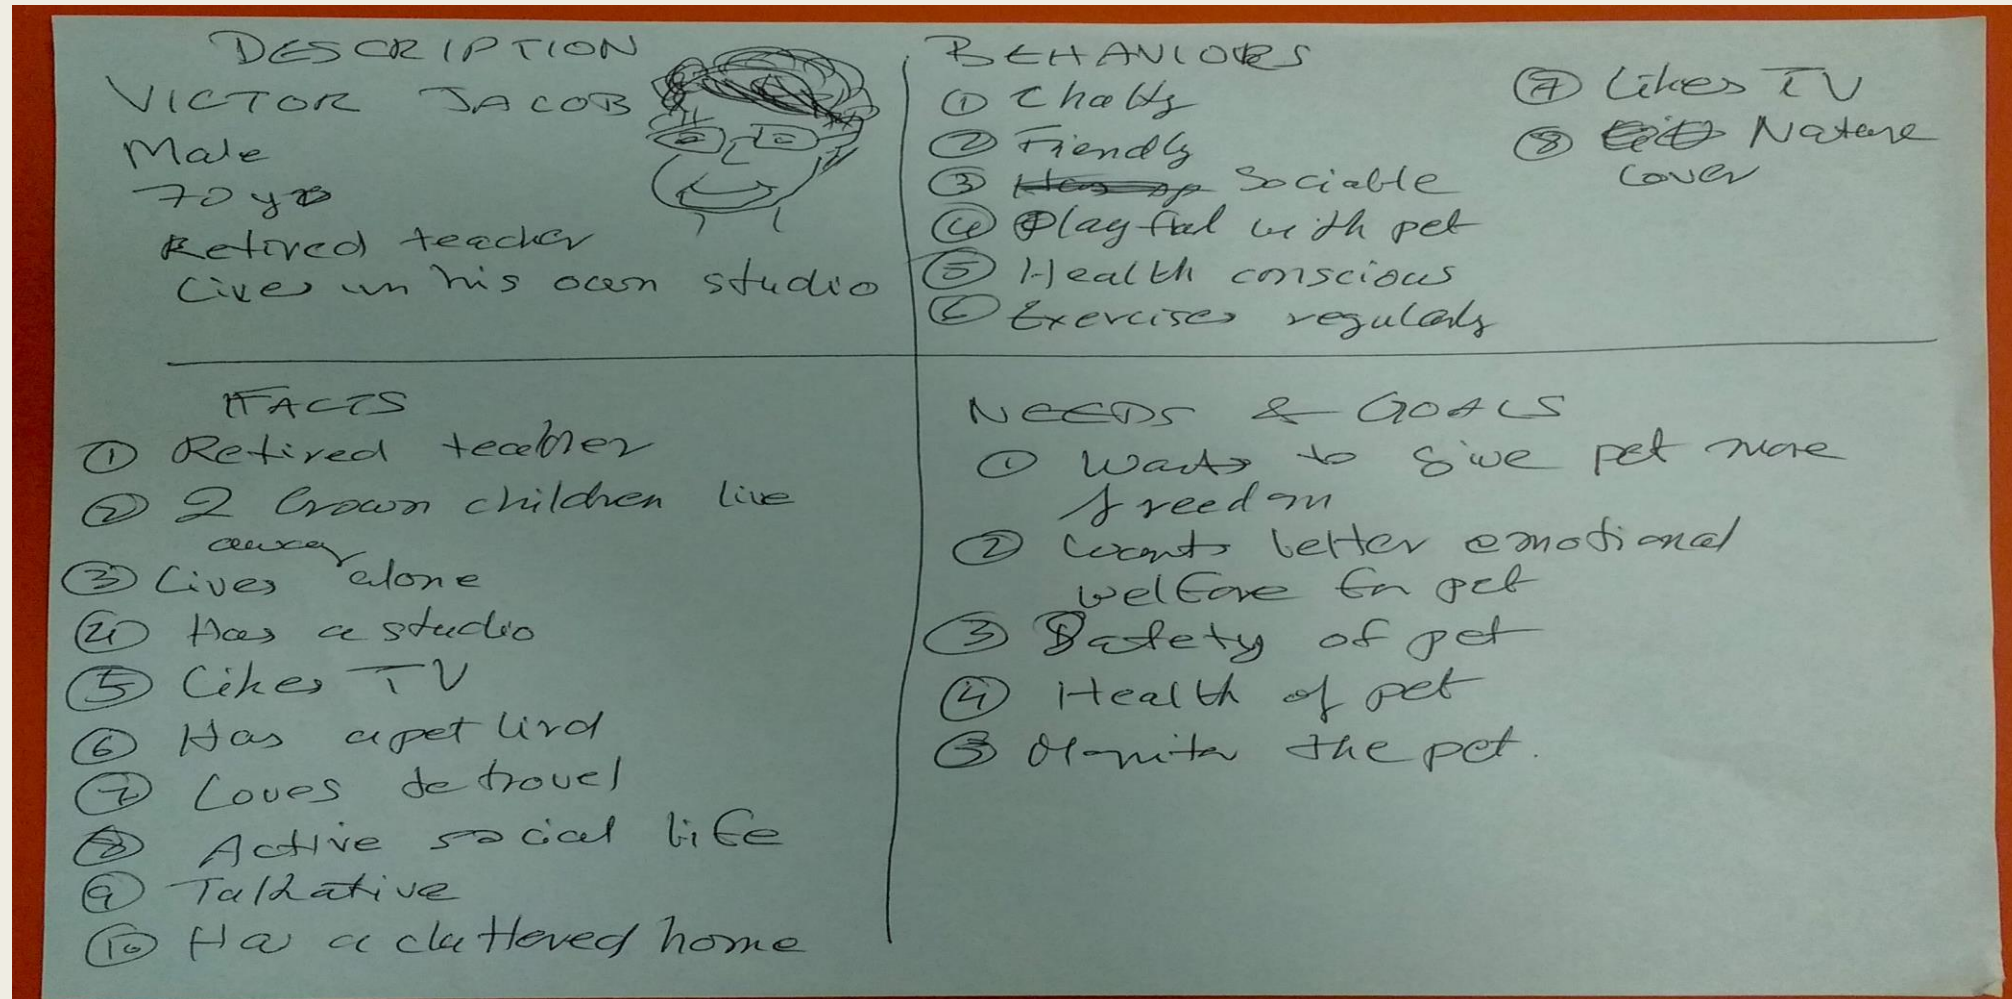 DESCRIPTION
VICTOR JACOB
Male
70 yrs
Retired teacher
Lives in his own studio
BEHAVIORS
① Chatty
② Fiendly
③ Sociable
④ Playful with pet
⑤ Health conscious
⑥ Exercises regularly
⑦ Likes TV
⑧ Nature
Lover
FACTS
① Retired teacher
② 2 Grown children live
away
③ Lives alone
④ Has a studio
⑤ Likes TV
⑥ Has a pet bird
⑦ Loves to travel
⑧ Active social life
⑨ Talkative
⑩ Has a cluttered home
NEEDS & GOALS
① Wants to give pet more
freedom
② Wants better emotional
welfare for pet
③ Safety of pet
④ Health of pet
⑤ Monitor the pet.